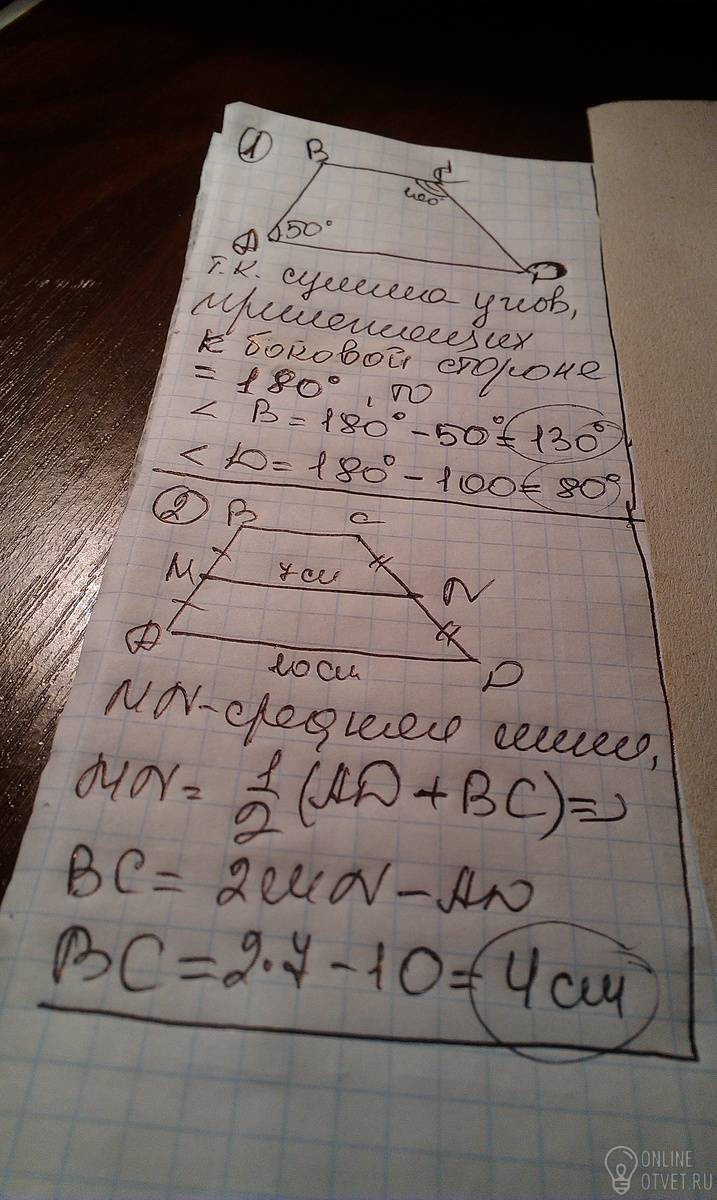 1
B C
100°
A 50° D
т.к. сумма углов,
прилежащих
к боковой стороне
= 180°, то
< B = 180° - 50° = 130°
< D = 180° - 100 = 80°
2
B C
M 7см N
A D
10см
MN - средняя линия,
MN = 1/2 (AD + BC) =>
BC = 2MN - AD
BC = 2·7 - 10 = 4 см
ONLINE
OTVET.RU